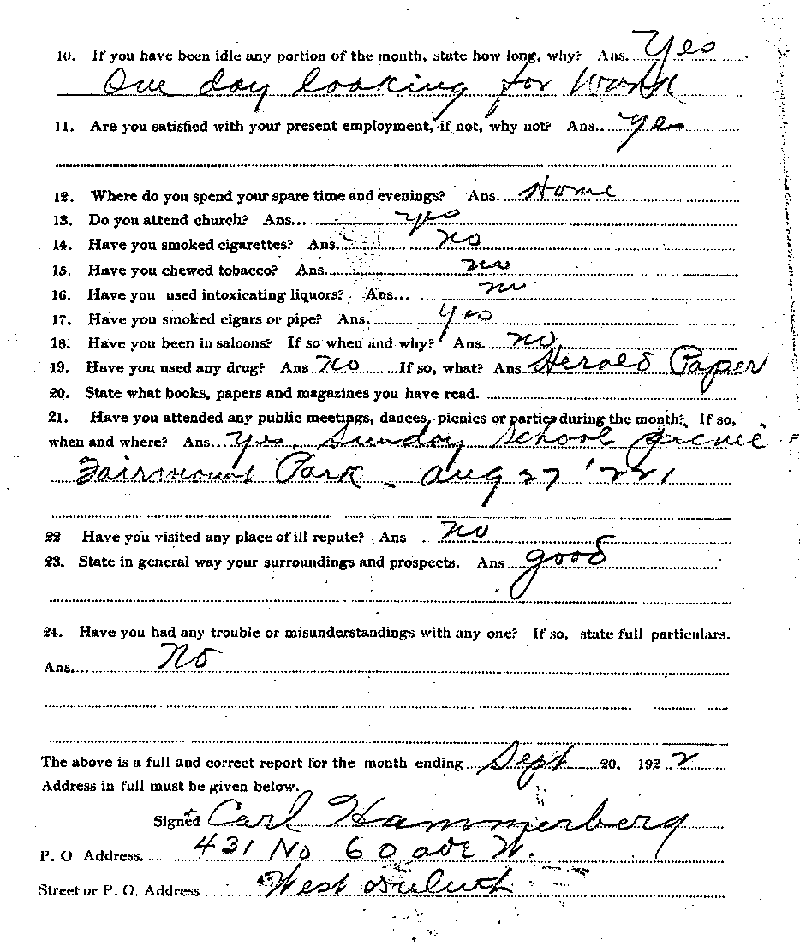 10. If you have been idle any portion of the month, state how long, why? Ans. Yes
One day looking for work
11. Are you satisfied with your present employment, if not, why not? Ans.. Yes
12. Where do you spend your spare time and evenings? Ans Home
13. Do you attend church? Ans... yes
14. Have you smoked cigarettes? Ans. no
15. Have you chewed tobacco? Ans. no
16. Have you used intoxicating liquors? Ans... no
17. Have you smoked cigars or pipe? Ans. Yes
18. Have you been in saloons? If so when and why? Ans. no
19. Have you used any drug? Ans no If so, what? Ans Herald Paper
20. State what books, papers and magazines you have read.
21. Have you attended any public meetings, dances, picnics or parties during the month? If so,
when and where? Ans.. yes. Sunday School picnic
Fairmount Park - Aug 27 '22
22 Have you visited any place of ill repute? Ans no
23. State in general way your surroundings and prospects. Ans good
24. Have you had any trouble or misunderstandings with any one? If so, state full particulars.
Ans.... No
The above is a full and correct report for the month ending Sept 20, 1922
Address in full must be given below.
Signed Carl Hammerberg
P. O Address. 431 No 60 ave W.
Street or P. O. Address West Duluth